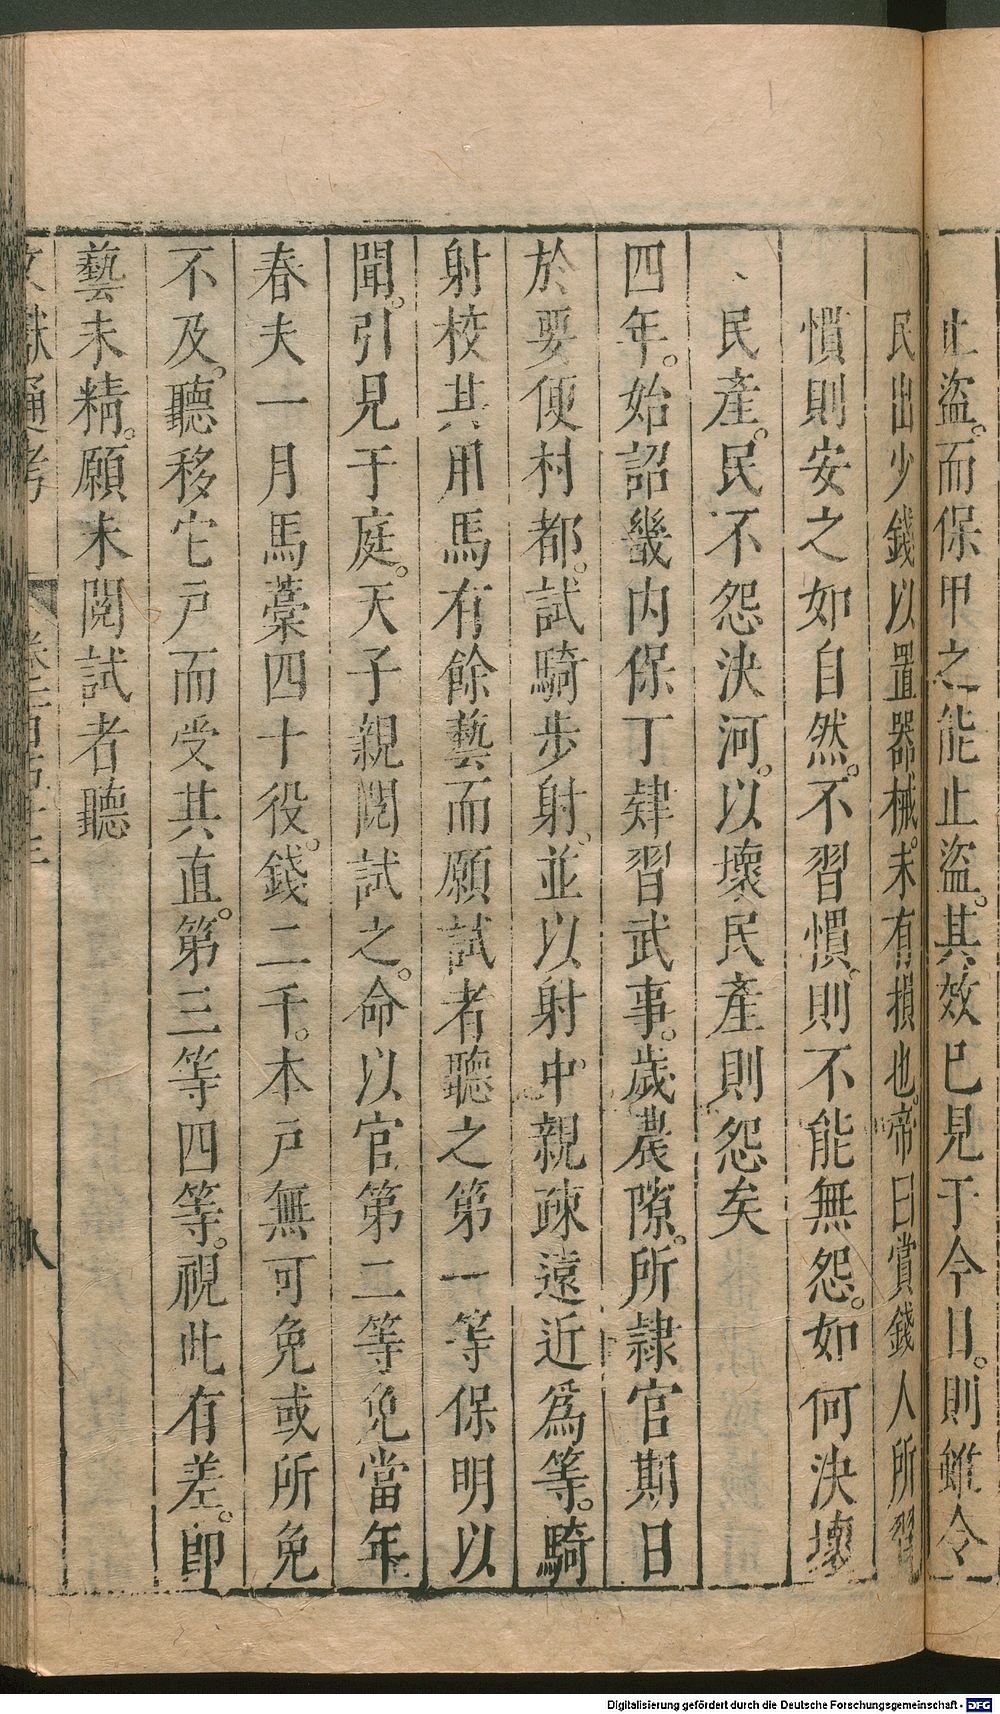 止盜而保甲之能止盜其效已見于今日則雖令
民出少錢以置器械未有損也帝曰賞錢人所習
慣則安之如自然不習慣則不能無怨如何決壞
民產民不怨決河以壞民產則怨矣
四年始詔畿內保丁肄習武事歲農隙所隸官期日
於要便村都試騎步射並以射中親疎遠近爲等騎
射校其用馬有餘藝而願試者聽之第一等保明以
聞引見于庭天子親閱試之命以官第二等免當年
春夫一月馬藁四十役錢二千本戶無可免或所免
不及聽移它戶而受其直第三等四等視此有差即
藝未精願未閱試者聽
文獻通考 卷一百五十三 八
Digitalisierung gefördert durch die Deutsche Forschungsgemeinschaft - DFG